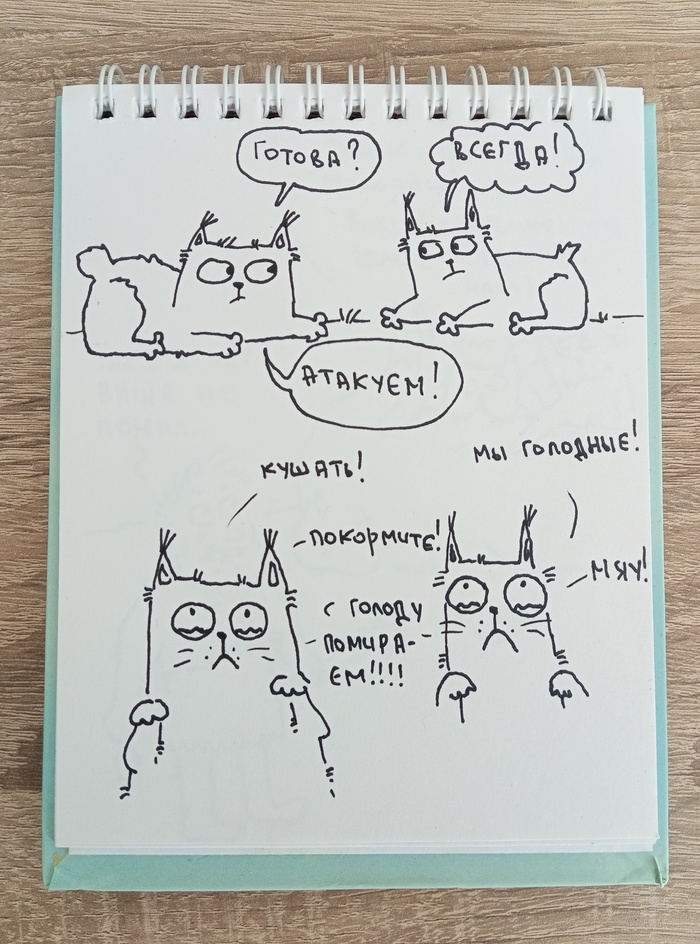 ГОТОВА?
ВСЕГДА!
АТАКУЕМ!
КУШАТЬ!
МЫ ГОЛОДНЫЕ!
ПОКОРМИТЕ!
МЯУ!
С ГОЛОДУ
ПОМИРА-
ЕМ!!!!